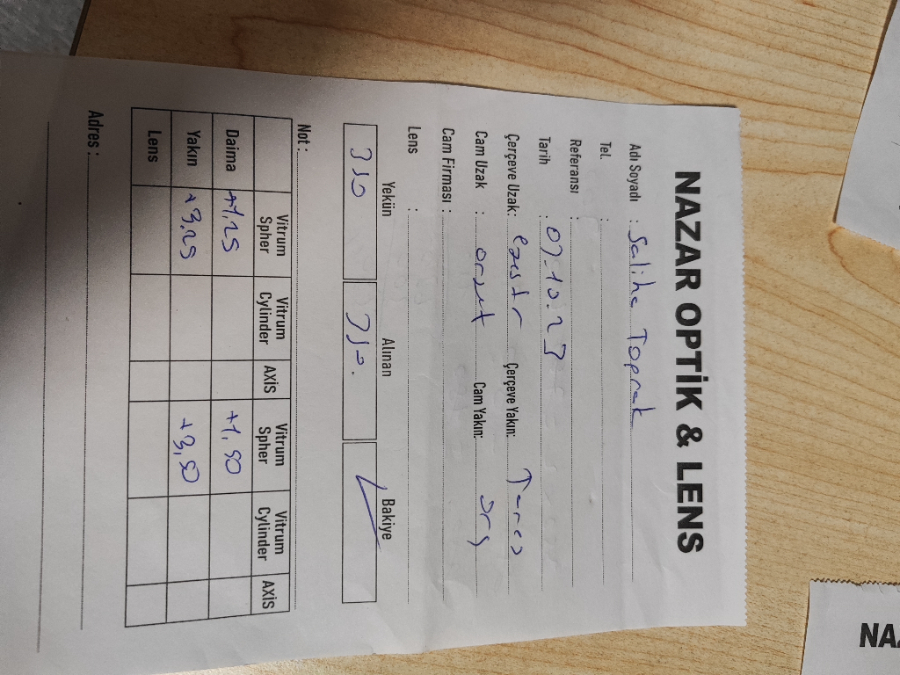 NAZAR OPTİK & LENS
Adı Soyadı : Saliha Toprak
Tel. :
Referansı :
Tarih : 07.10.23
Çerçeve Uzak: Çerçeve Yakın:
Cam Uzak : Cam Yakın:
Cam Firması :
Lens :
Yekün Alınan Bakiye
350 350.
Not :
Vitrum Spher Vitrum Cylinder AXİS Vitrum Spher Vitrum Cylinder AXİS
Daima +1,25 +1,50
Yakın +3,25 +3,50
Lens
Adres :
NAZ